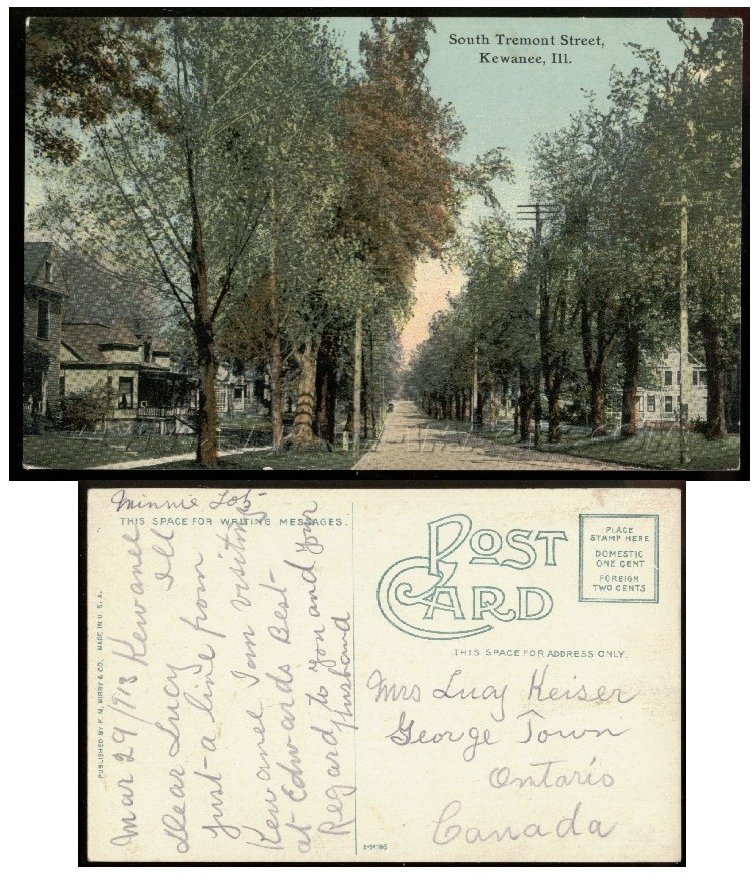 South Tremont Street,
Kewanee, Ill.
Minnie
THIS SPACE FOR WRITING MESSAGES.
Mar 29/913 Kewanee
Ill
Dear Lucy
Just a line from
Kewanee I am visiting
at Edwards Best
Regard to You and Your
Husband
PUBLISHED BY P. M. KIRBY & CO. MADE IN U. S. A.
POST CARD
PLACE
STAMP HERE
DOMESTIC
ONE CENT
FOREIGN
TWO CENTS
THIS SPACE FOR ADDRESS ONLY.
Mrs Lucy Keiser
George Town
Ontario
Canada